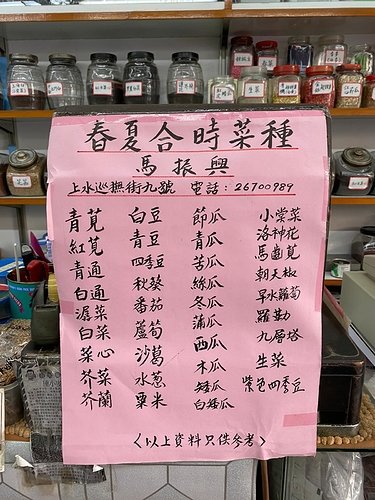 春夏合時菜種
馬振興
上水巡撫街九號 電話：26700989
青莧 白豆 節瓜 小棠菜
紅莧 青豆 青瓜 洛神花
青通 四季豆 苦瓜 馬齒莧
白通 秋葵 絲瓜 朝天椒
潺菜 番茄 冬瓜 旱水蘿蔔
白菜 蘆筍 蒲瓜 羅勒
菜心 沙葛 西瓜 九層塔
芥菜 水蔥 木瓜 生菜
芥蘭 粟米 矮瓜 紫色四季豆
白矮瓜
<以上資料只供參考>
生菜